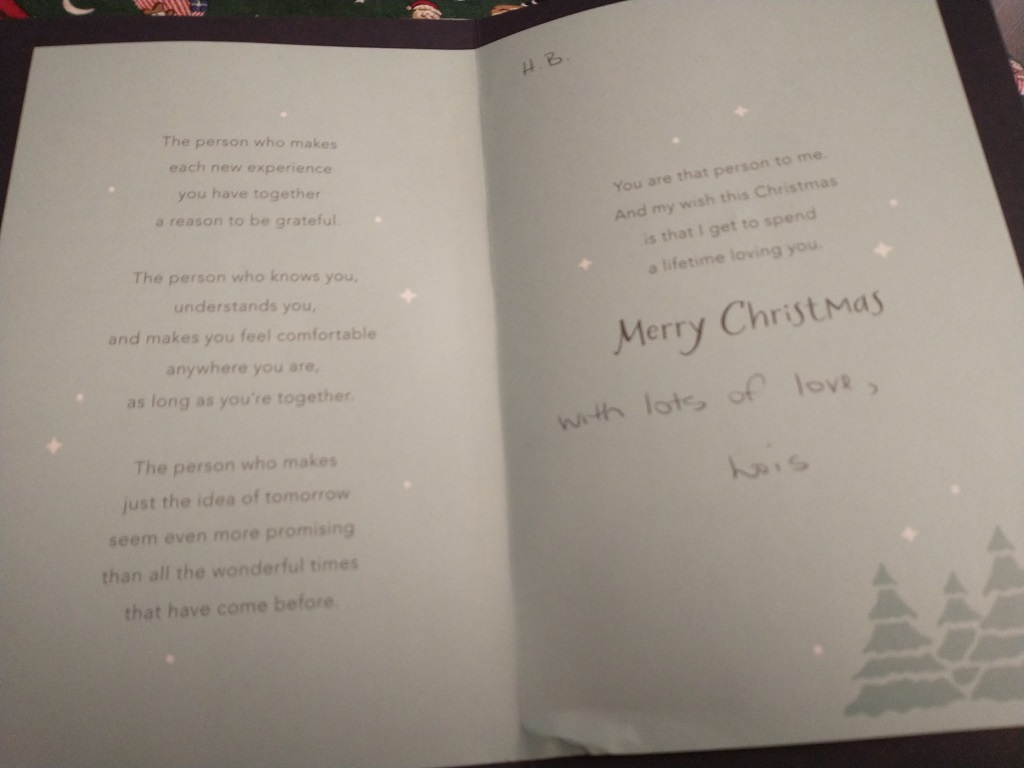 The person who makes
each new experience
you have together
a reason to be grateful.
The person who knows you,
understands you,
and makes you feel comfortable
anywhere you are,
as long as you're together.
The person who makes
just the idea of tomorrow
seem even more promising
than all the wonderful times
that have come before.
H.B.
You are that person to me.
And my wish this Christmas
is that I get to spend
a lifetime loving you.
Merry Christmas
with lots of love,
Lois